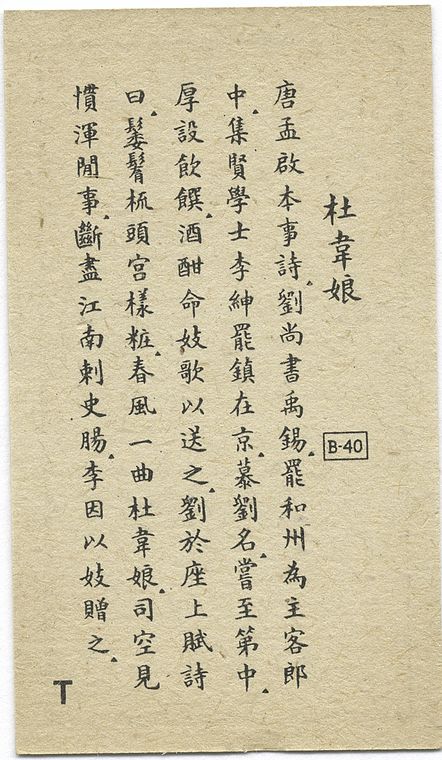 杜韋娘
B-40
唐孟啟本事詩劉尚書禹錫罷和州為主客郎
中集賢學士李紳罷鎮在京慕劉名嘗至第中
厚設飲饌酒酣命妓歌以送之劉於座上賦詩
曰鬌髾梳頭宮樣粧春風一曲杜韋娘司空見
慣渾閒事斷盡江南刺史腸李因以妓贈之
T